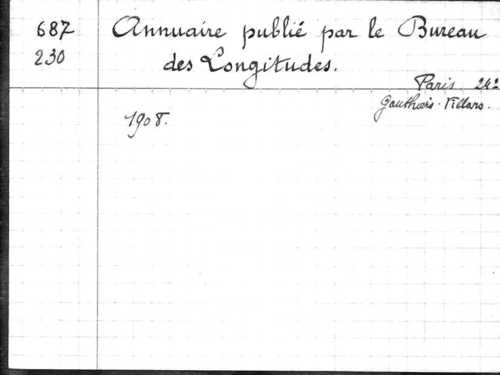 687 Annuaire publié par le Bureau
230 des Longitudes.
Paris 24º
Gauthiers-Villars.
1908.